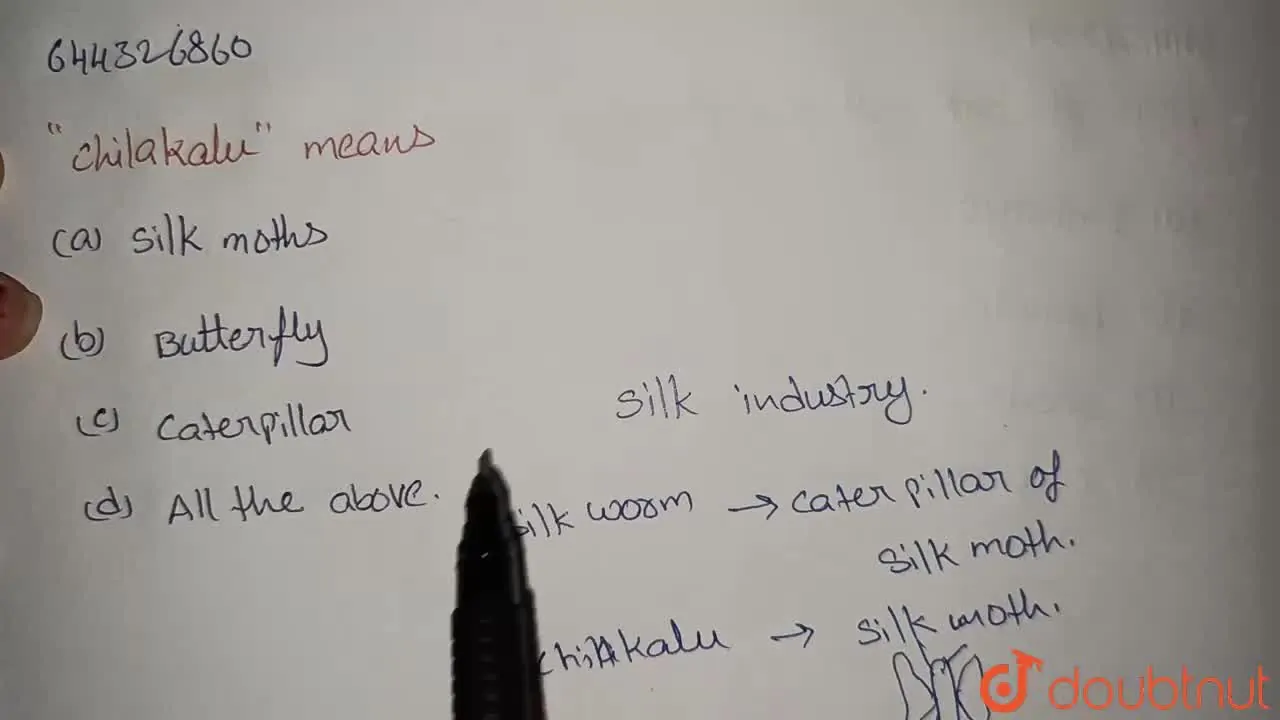 644326860
"Chilakalu" means
(a) Silk moths
(b) Butterfly
(c) Caterpillar
(d) All the above.
Silk industry.
silk worm → Caterpillar of
silk moth.
chilakalu → silk moth.
doubtnut